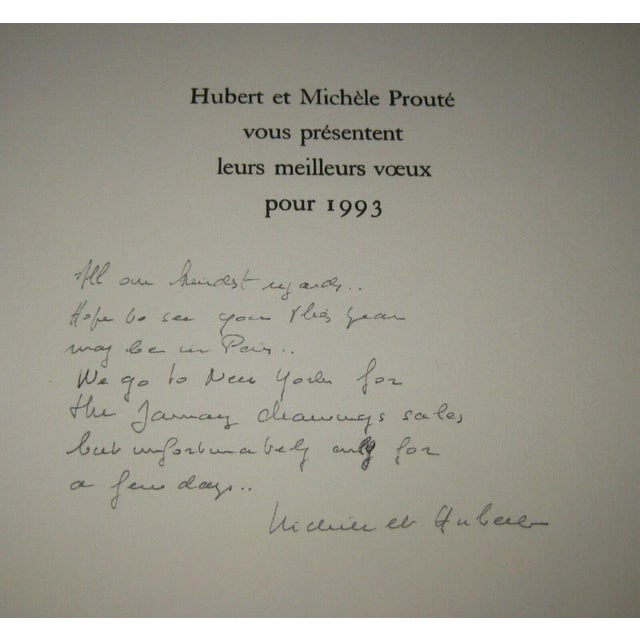 Hubert et Michèle Prouté
vous présentent
leurs meilleurs vœux
pour 1993
All our kindest regards..
Hope to see you this year
may be in Paris..
We go to New York for
the January drawings sales
but unfortunately only for
a few days..
Michèle et Hubert